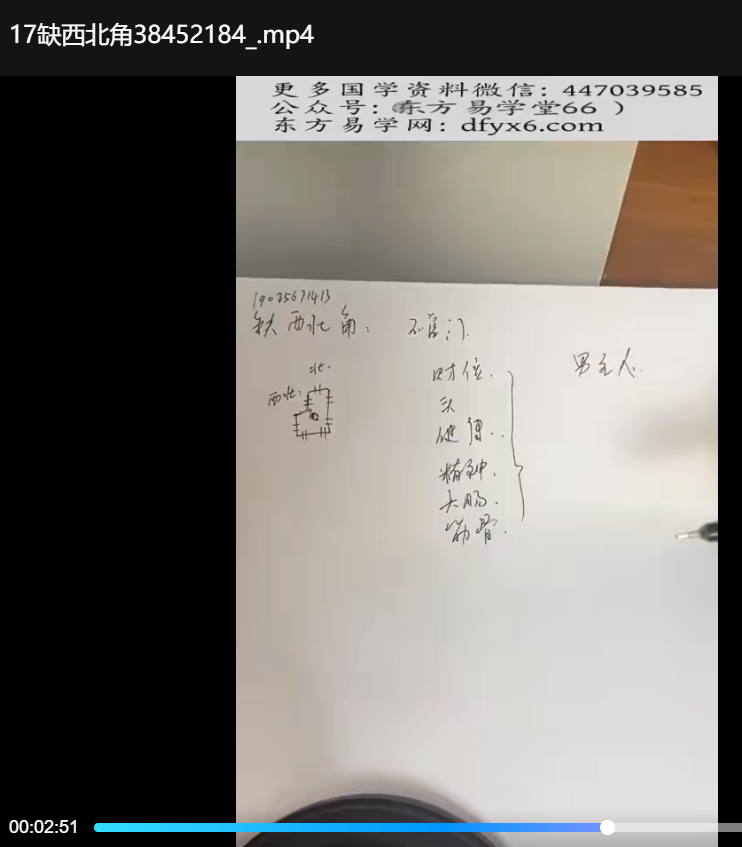 17缺西北角38452184_.mp4
更多国学资料微信：447039585
公众号：（东方易学堂66 ）
东方易学网：dfyx6.com
19025671413
缺西北角：
北.
西北.
财位.
头
健
精神.
大肠.
筋骨.
男主人.
00:02:51